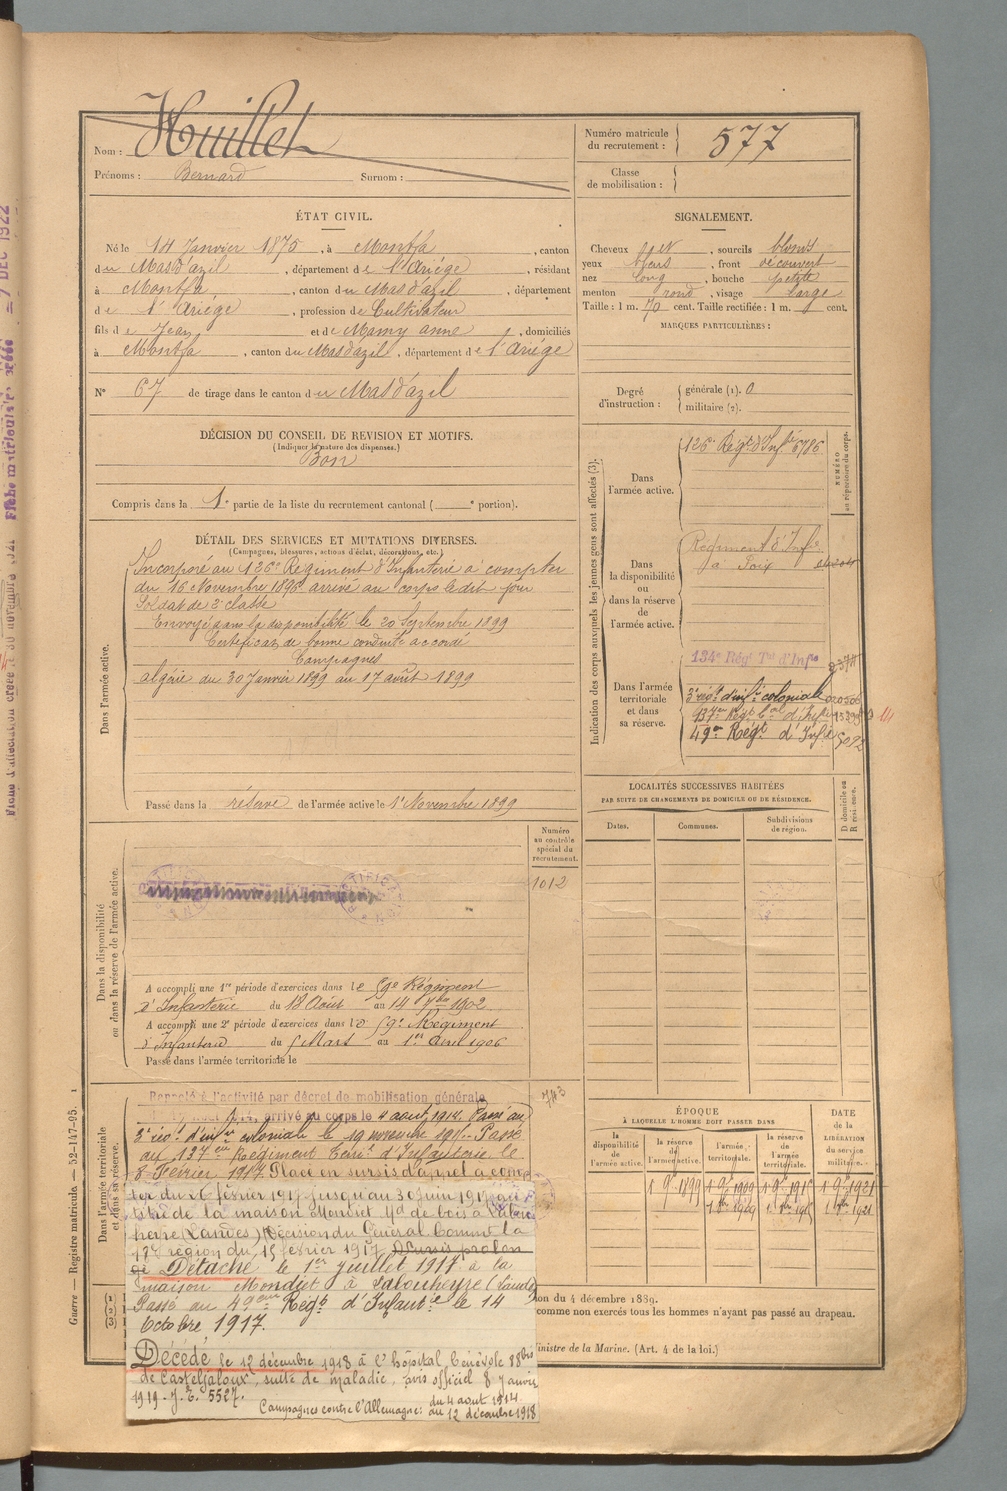 Huillet
Nom :
Prénoms : Bernard Surnom :
Numéro matricule du recrutement : 577
Classe de mobilisation :
ÉTAT CIVIL.
Né le 14 Janvier 1875, à Montfa, canton
du Mas d'azil, département de l'Ariége, résidant
à Montfa, canton du Mas d'azil, département
de l'Ariége, profession de Cultivateur
fils de Jean et de Mamy anne, domiciliés
à Montfa, canton du Mas d'azil, département de l'Ariége
N° 67 de tirage dans le canton du Mas d'azil
SIGNALEMENT.
Cheveux , sourcils blonds
yeux bleus, front découvert
nez long, bouche petite
menton rond, visage large
Taille : 1 m. 70 cent. Taille rectifiée : 1 m. cent.
MARQUES PARTICULIÈRES :
Degré d'instruction : générale (1). 0
militaire (2).
DÉCISION DU CONSEIL DE REVISION ET MOTIFS.
(Indiquer la nature des dispenses.)
Bon
Compris dans la 1e partie de la liste du recrutement cantonal ( e portion).
DÉTAIL DES SERVICES ET MUTATIONS DIVERSES.
(Campagnes, blessures, actions d'éclat, décorations, etc.)
Dans l'armée active.
Incorporé au 126e Régiment d'Infanterie à compter
du 16 Novembre 1896 arrivé au corps le dit jour
Soldat de 2e classe
Envoyé dans la disponibilité le 20 Septembre 1899
Certificat de bonne conduite accordé
Campagnes
algérie du 30 Janvier 1899 au 17 août 1899
Passé dans la réserve de l'armée active le 1er Novembre 1899
Indication des corps auxquels les jeunes gens sont affectés (3).
NUMÉRO au répertoire du corps.
Dans l'armée active.
126e Régt d'Infie 6786
Dans la disponibilité ou dans la réserve de l'armée active.
Régiment d'Infie
à Foix
Dans l'armée territoriale et dans sa réserve.
134e Régt Tal d'Infie
3e régt d'infie coloniale
137e Régt Tal d'Infie
49e Régt d'Infie 5092
LOCALITÉS SUCCESSIVES HABITÉES
PAR SUITE DE CHANGEMENTS DE DOMICILE OU DE RÉSIDENCE.
Dates.
Communes.
Subdivisions de région.
D domicile ou R résidence.
Dans la disponibilité ou dans la réserve de l'armée active.
Numéro au contrôle spécial du recrutement.
1012
A accompli une 1re période d'exercices dans le 59e Régiment
d'Infanterie du 18 Août au 14 7bre 1902
A accompli une 2e période d'exercices dans le 59e Régiment
d'Infanterie du 5 Mars au 1er Avril 1906
Passé dans l'armée territoriale le
Dans l'armée territoriale et dans sa réserve.
Rappelé à l'activité par décret de mobilisation générale
août 1914, arrivé au corps le 4 août 1914. Passé au
3e régt d'infie coloniale le 19 novembre 191. Passé
au 137e Régiment Terrl d'Infanterie le
8 Février 1917. Placé en sursis d'appel à comp
ter du 26 février 1917 jusqu'au 30 juin 1917 au
titre de la maison Mondiet Md de bois à Labou
heyre (Landes) Décision du Général Commt la
région du 15 février 1917. Sursis prolon
gé Détaché le 1er juillet 1917 à la
maison Mondiet à Labouheyre (Landes)
Passé au 49eme Régt d'Infanie le 14
Octobre 1917.
Décédé le 12 décembre 1918 à l'hôpital bénévole 88bis
de Casteljaloux, suite de maladie, avis officiel 8 janvier
1919 - J.E. 5527.
Campagnes contre l'Allemagne : du 4 août 1914
au 12 décembre 1918
743
ÉPOQUE
À LAQUELLE L'HOMME DOIT PASSER DANS
la disponibilité de l'armée active.
la réserve de l'armée active.
l'armée territoriale.
la réserve de l'armée territoriale.
DATE de la LIBÉRATION du service militaire.
1 9e 1899 1 9e 1909 1 9e 1915 1 9e 1921
du 4 décembre 1889.
comme non exercés tous les hommes n'ayant pas passé au drapeau.
Ministre de la Marine. (Art. 4 de la loi.)
Guerre — Registre matricule. — 52-147-95.